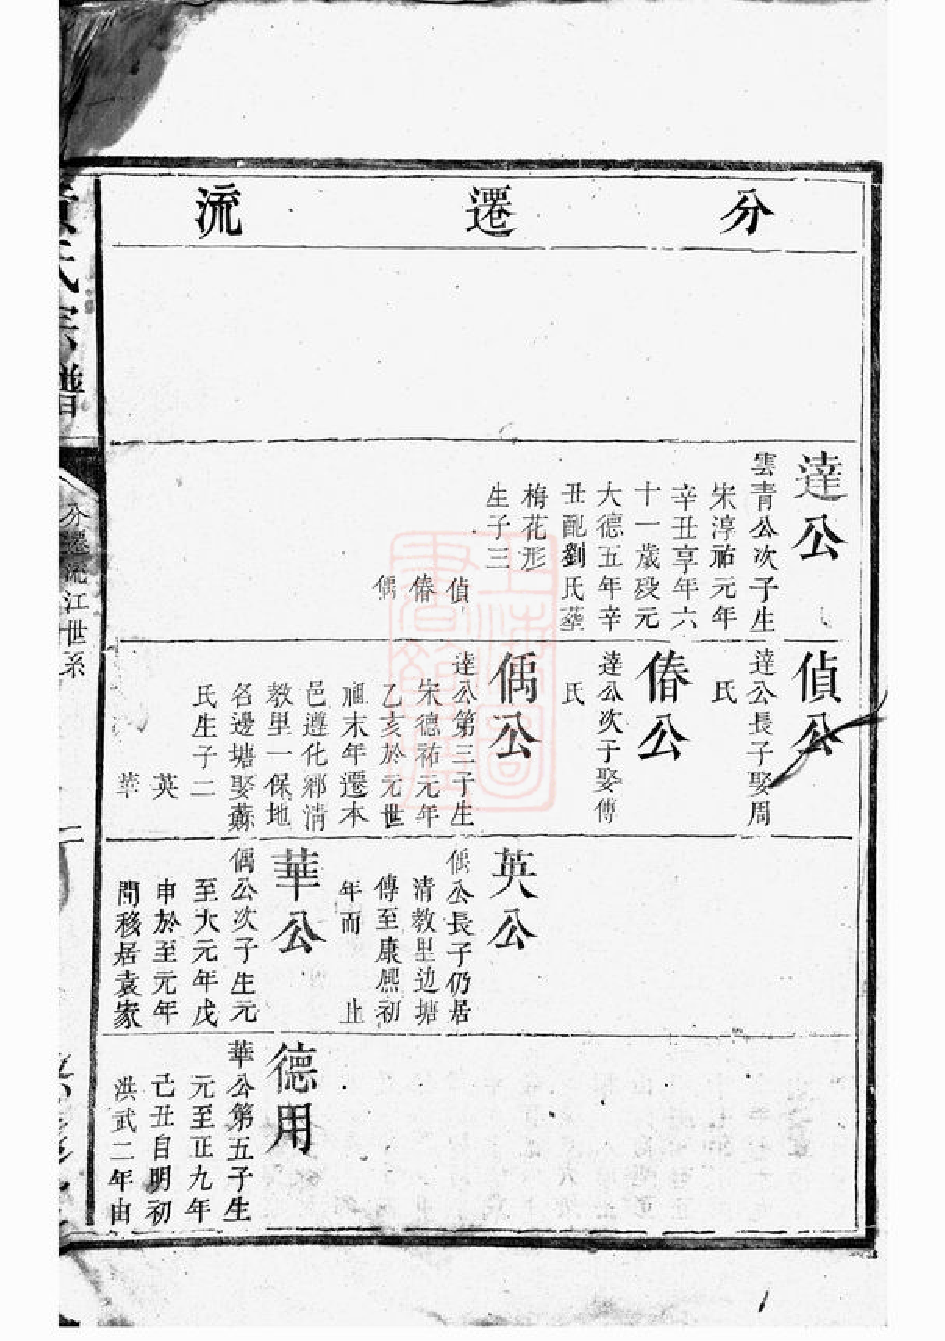 分遷流
達公
雲青公次子生
宋淳祐元年
辛丑享年六
十一歲歿元
大德五年辛
丑配劉氏葬
梅花形
生子三
偵
偆
偊
偵公
達公長子娶周
氏
偆公
達公次子娶傅
氏
偊公
達公第三子生
宋德祐元年
乙亥於元世
祖末年遷本
邑遵化鄉清
教里一保地
名邊塘娶蘇
氏生子二
英
華
英公
偊公長子仍居
清教里边塘
傳至康熈初
年而止
華公
偶公次子生元
至大元年戊
申於至元年
間移居袁家
德用
華公第五子生
元至正九年
己丑自明初
洪武二年由
氏宗譜
分遷流江世系